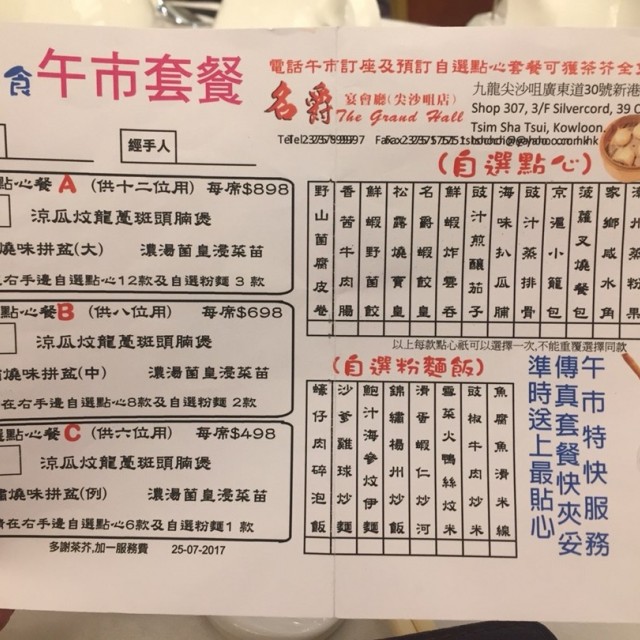 食午市套餐
經手人
點心餐A (供十二位用) 每席$898
涼瓜炆龍躉斑頭腩煲
燒味拼盆(大) 濃湯菌皇浸菜苗
在右手邊自選點心12款及自選粉麵 3 款
點心餐B (供八位用) 每席$698
涼瓜炆龍躉斑頭腩煲
燒味拼盆(中) 濃湯菌皇浸菜苗
在右手邊自選點心8款及自選粉麵 2款
點心餐C (供六位用) 每席$498
涼瓜炆龍躉斑頭腩煲
燒味拼盆(例) 濃湯菌皇浸菜苗
請在右手邊自選點心6款及自選粉麵1 款
多謝茶芥,加一服務費 25-07-2017
電話午市訂座及預訂自選點心套餐可獲茶芥全
名爵 宴會廳(尖沙咀店)
The Grand Hall
九龍尖沙咀廣東道30號新港
Shop 307, 3/F Silvercord, 39 C
Tsim Sha Tsui, Kowloon.
(自選點心)
野山菌腐皮卷
香茜牛肉腸
鮮蝦野菌餃
松露燒賣皇
名爵蝦餃皇
鮮蝦炸雲吞
豉汁煎釀茄子
海味扒瓜脯
豉汁蒸排骨
京滬小籠包
菠蘿叉燒餐包
家鄉咸水角
州蒸粉果
以上每款點心紙可以選擇一次,不能重覆選擇同款
(自選粉麵飯)
蠔仔肉碎泡飯
沙爹雞球炒麵
鮑汁海參炆伊麵
錦繡楊州炒飯
滑蛋蝦仁炒河
雪菜火鴨絲炆米
豉椒牛肉炒米
魚腐魚滑米線
午市特快服務
傳真套餐快夾妥
準時送上最貼心